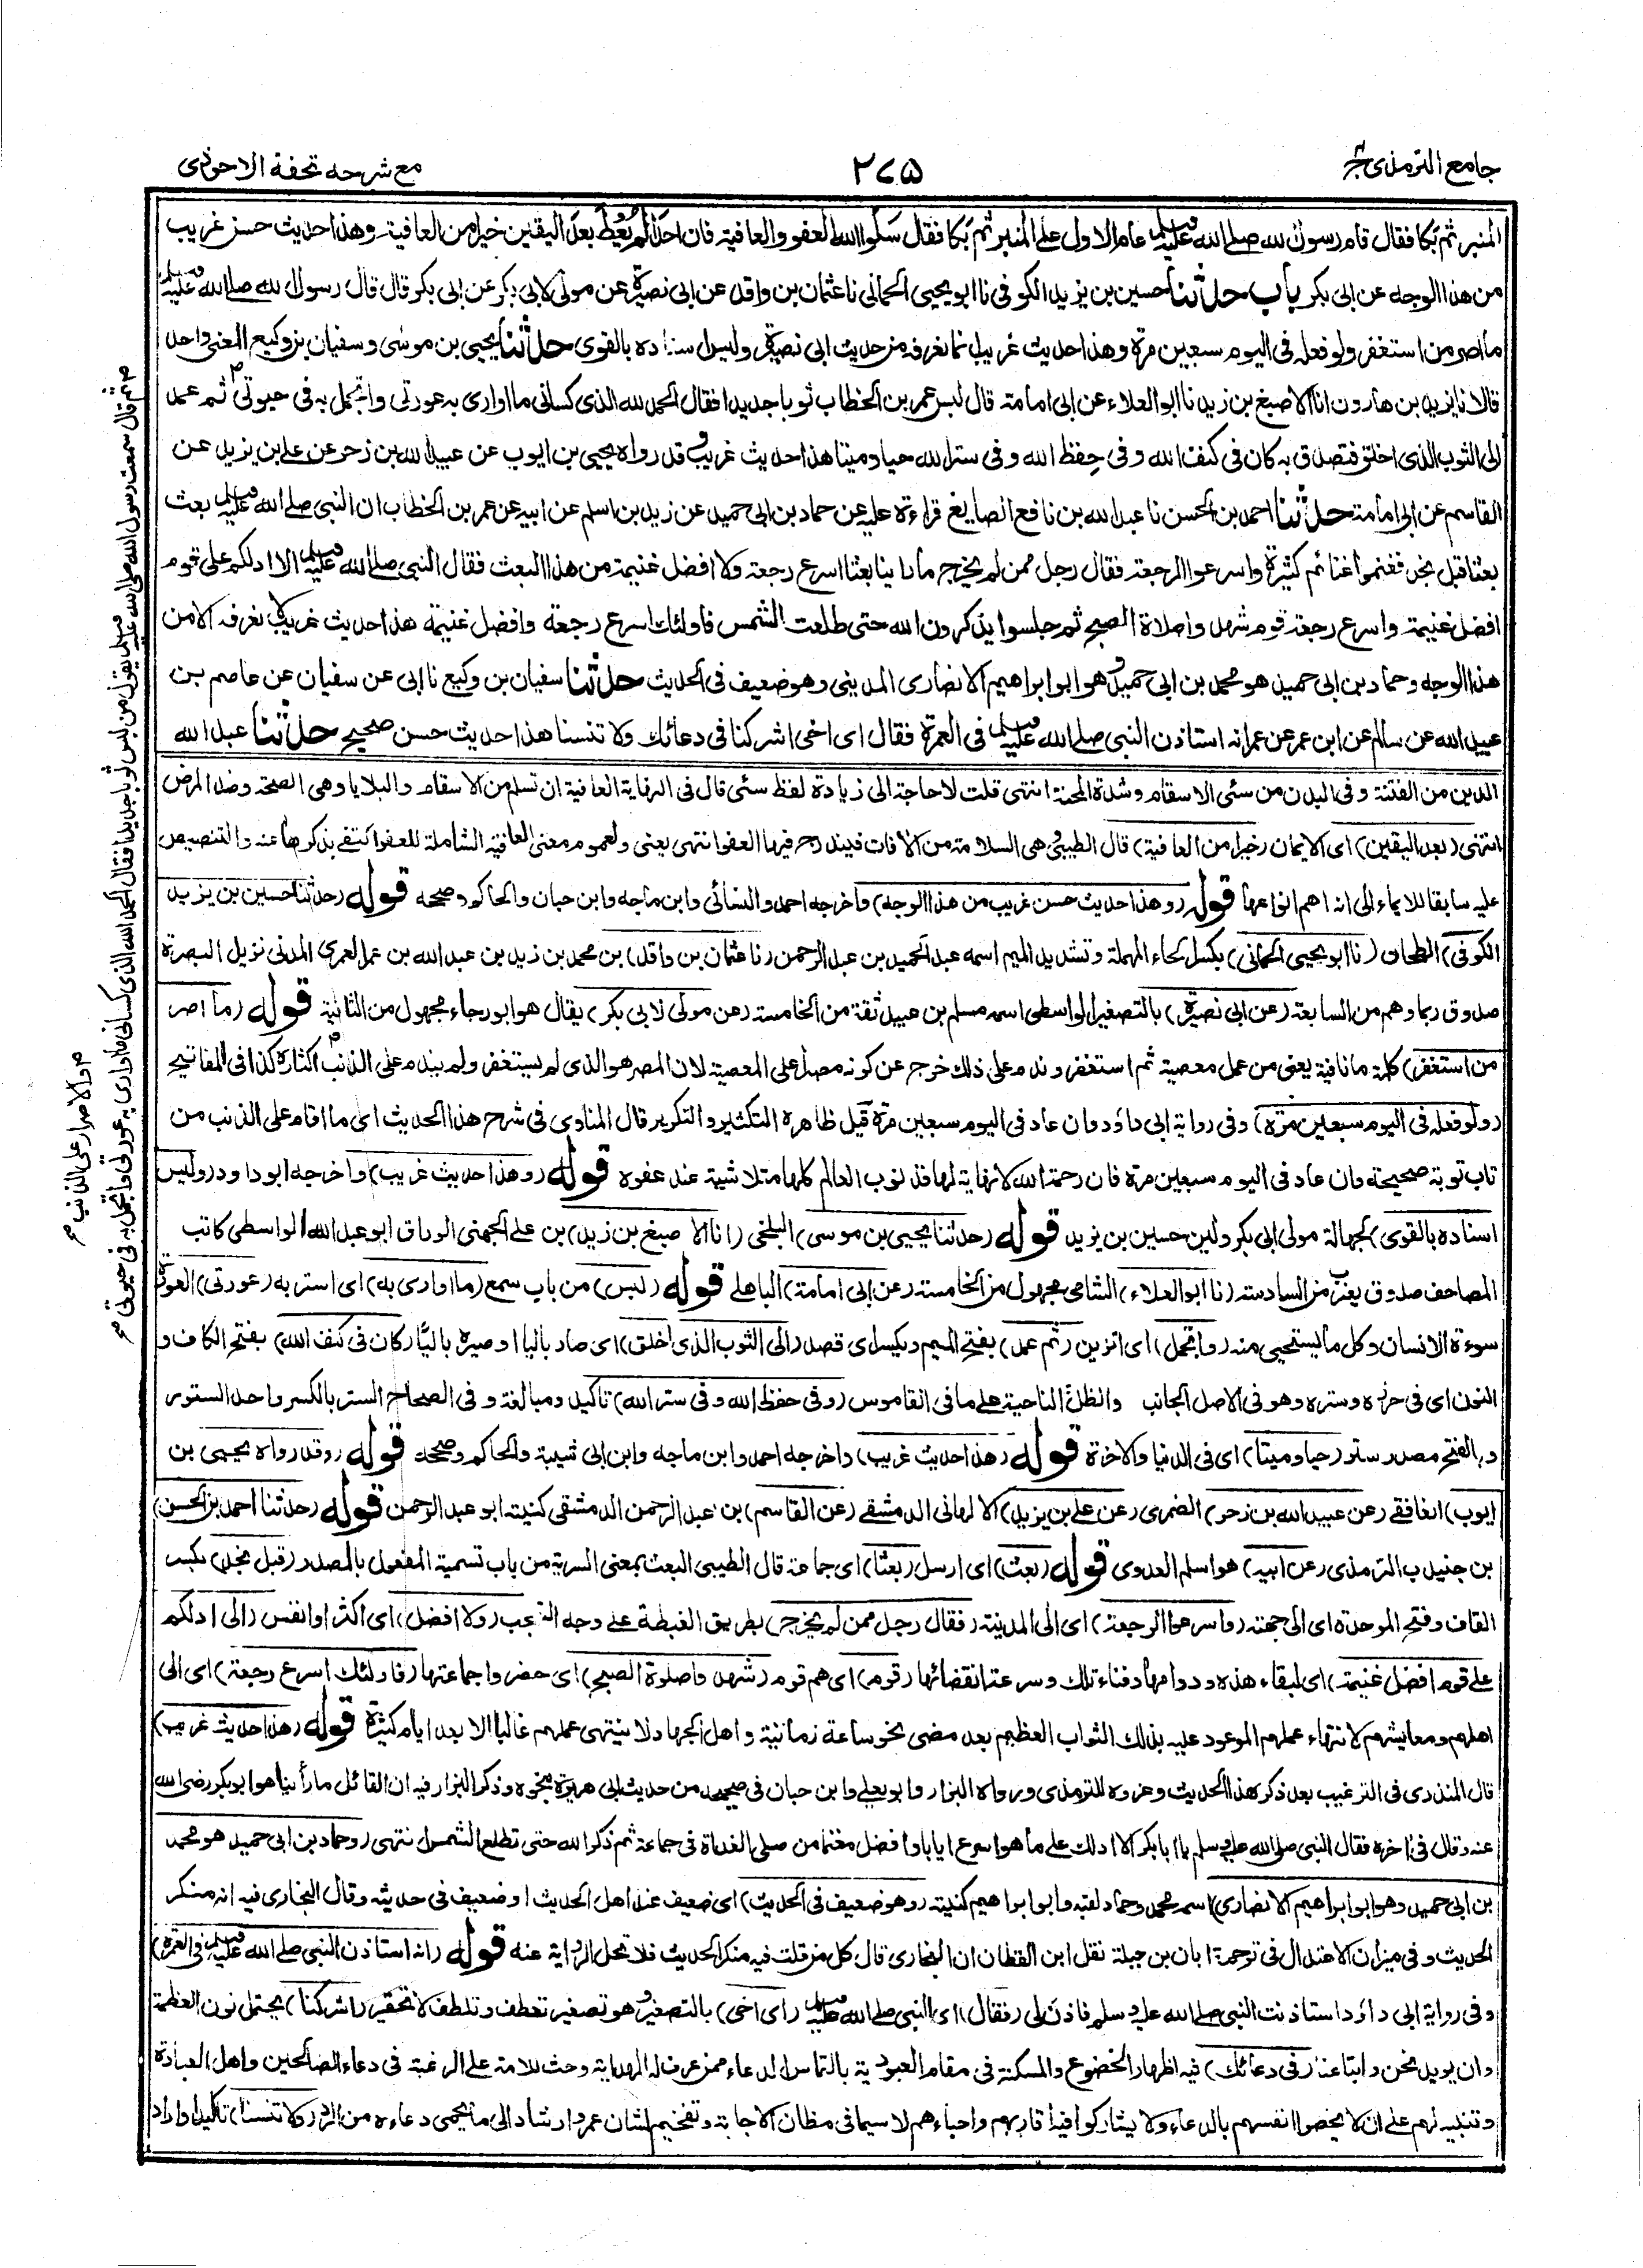 جامع الترمذی
٢٧٥
مع شرحه تحفة الاحوذی
المنبر ثم بكا فقال قام رسول الله صلے الله علیه وسلم عام الاول علے المنبر ثم بكا فقال سَلُوا الله العفو والعافیة فان احدًا لم یُعْطَ بعدَ الیقین خیرا من العافیة وهذا حدیث حسن غریب
من هذا الوجه عن ابی بكر باب حدثنا حسین بن یزید الكوفی نا ابو یحیی الحمانی نا عثمان بن واقد عن ابی نصیرة عن مولی لابی بكر عن ابی بكر قال قال رسول الله صلے الله علیه وسلم
ما اصر من استغفر ولو فعله فی الیوم سبعین مرة وهذا حدیث غریب انما نعرفه من حدیث ابی نصیرة ولیس اسناده بالقوی حدثنا یحیی بن موسٰی وسفیان بن وكیع المعنی واحد
قالا نا یزید بن هارون انا الاصبغ بن زید نا ابو العلاء عن ابی امامة قال لبس عمر بن الخطاب ثوبا جدیدا فقال الحمد لله الذی كسانی ما اواری به عورتی واتجمل به فی حیوتی ۲ ثم عمد
الی الثوب الذی اخلق فتصدق به كان فی كنف الله وفی حِفظ الله وفی ستر الله حیا ومیتا هذا حدیث غریب وقد رواه یحیی بن ایوب عن عبید الله بن زحر عن علے بن یزید عن
القاسم عن ابی امامة حدثنا احمد بن الحسن نا عبد الله بن نافع الصایغ قراءة علیه عن حماد بن ابی حمید عن زید بن اسلم عن ابیه عن عمر بن الخطاب ان النبی صلے الله علیه وسلم بعث
بعثا قبل نجد فغنموا غنائم كثیرة واسرعوا الرجعة فقال رجل ممن لم یخرج ما راینا بعثا اسرع رجعة ولا افضل غنیمة من هذا البعث فقال النبی صلے الله علیه وسلم الا ادلكم علی قوم
افضل غنیمة واسرع رجعة قوم شهدوا صلاة الصبح ثم جلسوا یذكرون الله حتی طلعت الشمس فاولئك اسرع رجعة وافضل غنیمة هذا حدیث غریب لا نعرفه الا من
هذا الوجه وحماد بن ابی حمید هو محمد بن ابی حمید وهو ابو ابراهیم الانصاری المدینی وهو ضعیف فی الحدیث حدثنا سفیان بن وكیع نا ابی عن سفیان عن عاصم بن
عبید الله عن سالم عن ابن عمر عن عمر انه استاذن النبی صلے الله علیه وسلم فی العمرة فقال ای اخی اشركنا فی دعائك ولا تنسنا هذا حدیث حسن صحیح حدثنا عبد الله
الدین من الفتنة وفی البدن من سئی الاسقام وشدة المحنة انتهی قلت لا حاجة الی زیادة لفظ سئی قال فی النهایة العافیة ان تسلم من الاسقام والبلایا وهی الصحة وضد المرض
انتهی (بعد الیقین) ای الایمان (خیرا من العافیة) قال الطیبی هی السلامة من الآفات فیندرج فیها العفو انتهی یعنی ولعموم معنی العافیة الشاملة للعفو اكتفی بذكرها عنه والتنصیص
علیه سابقا للایماء الی انه اهم انواعها قوله (وهذا حدیث حسن غریب من هذا الوجه) واخرجه احمد والنسائی وابن ماجه وابن حبان والحاكم وصححه قوله (حدثنا حسین بن یزید
الكوفی) الطحان (نا ابو یحیی الحمانی) بكسر الحاء المهملة وتشدید المیم اسمه عبد الحمید بن عبد الرحمن (نا عثمان بن واقد) بن محمد بن زید بن عبد الله بن عمر العمری المدنی نزیل البصرة
صدوق ربما وهم من السابعة (عن ابی نصیرة) بالتصغیر الواسطی اسمه مسلم بن عبید ثقة من الخامسة (عن مولی لابی بكر) یقال هو ابو رجاء مجهول من الثانیة قوله (ما اصر
من استغفر) كلمة ما نافیة یعنی من عمل معصیة ثم استغفر وندم علی ذلك خرج عن كونه مصرا علی المعصیة لان المصر هو الذی لم یستغفر ولم یندم علی الذنب ۲ اكثاره كذا فی المفاتیح
(ولو فعله فی الیوم سبعین مرة) وفی روایة ابی داؤد وان عاد فی الیوم سبعین مرة قیل ظاهره التكثیر والتكریر قال المناوی فی شرح هذا الحدیث ای ما اقام علی الذنب من
تاب توبة صحیحة وان عاد فی الیوم سبعین مرة فان رحمة الله لا نهایة لها فذنوب العالم كلها متلاشیة عند عفوه قوله (وهذا حدیث غریب) واخرجه ابو داود (ولیس
اسناده بالقوی) لجهالة مولی ابی بكر ولین حسین بن یزید قوله (حدثنا یحیی بن موسی) البلخی (انا الاصبغ بن زید) بن علی الجهنی الوراق ابو عبد الله الواسطی كاتب
المصاحف صدوق یغرب من السادسة (نا ابو العلاء) الشامی مجهول من الخامسة (عن ابی امامة) الباهلے قوله (لبس) من باب سمع (ما اواری به) ای استر به (عورتی) العورة
سوءة الانسان وكل ما یستحیی منه (واتجمل) ای اتزین (ثم عمد) بفتح المیم ویكسر ای قصد (الی الثوب الذی اخلق) ای صار بالیا او صیره بالیًا (كان فی كنف الله) بفتح الكاف و
النون ای فی حرزه وستره وهو فی الاصل الجانب والظل الناحیة علے ما فی القاموس (وفی حفظ الله وفی ستر الله) تاكید ومبالغة وفی الصحاح الستر بالكسر واحد الستور
وبالفتح مصدر ستر (حیا ومیتا) ای فی الدنیا والآخرة قوله (هذا حدیث غریب) واخرجه احمد وابن ماجه وابن ابی شیبة والحاكم وصححه قوله (وقد رواه یحیی بن
ایوب) الغافقے (عن عبید الله بن زحر) الضمری (عن علے بن یزید) الالهانی الدمشقے (عن القاسم) بن عبد الرحمن الدمشقی كنیته ابو عبد الرحمن قوله (حدثنا احمد بن الحسن)
بن جنیدب الترمذی (عن ابیه) هو اسلم العدوی قوله (بعث) ای ارسل (بعثا) ای جماعة قال الطیبی البعث بمعنی السریة من باب تسمیة المفعول بالمصدر (قبل نجد) بكسر
القاف وفتح الموحدة ای الی جهته (واسرعوا الرجعة) ای الی المدینة (فقال رجل ممن لم یخرج) بطریق الغبطة علے وجه التعجب (ولا افضل) ای اكثر او انفس (الی ادلكم
علے قوم افضل غنیمة) ای لبقاء هذه ودوامها وفناء تلك وسرعة انقضائها (قوم) ای هم قوم (شهدوا صلوة الصبح) ای حضروا جماعتها (فاولئك اسرع رجعة) ای الی
اهلهم ومعایشهم لانتهاء عملهم الموعود علیه بذلك الثواب العظیم بعد مضی نحو ساعة زمانیة واهل الجهاد لا ینتهی عملهم غالبا الا بعد ایام كثیرة قوله (هذا حدیث غریب)
قال المنذری فی الترغیب بعد ذكر هذا الحدیث وعزوه للترمذی ورواه البزار وابو یعلے وابن حبان فی صحیحه من حدیث ابی هریرة بنحوه وذكر البزار فیه ان القائل ما رأینا هو ابو بكر رضی الله
عنه وقال فی اخره فقال النبی صلی الله علیه وسلم یا ابا بكر الا ادلك علے ما هو اسرع ایابا وافضل مغنما من صلی الغداة فی جماعة ثم ذكر الله حتی تطلع الشمس انتهی (وحماد بن ابی حمید هو محمد
بن ابی حمید وهو ابو ابراهیم الانصاری) اسمه محمد وحماد لقبه وابو ابراهیم كنیته (وهو ضعیف فی الحدیث) ای ضعیف عند اهل الحدیث او ضعیف فی حدیثه وقال البخاری فیه انه منكر
الحدیث وفی میزان الاعتدال فی ترجمة ابان بن جبلة نقل ابن القطان ان البخاری قال كل من قلت فیه منكر الحدیث فلا تحل الروایة عنه قوله (انه استاذن النبی صلے الله علیه وسلم فی العمرة)
وفی روایة ابی داؤد استاذنت النبی صلے الله علیه وسلم فاذن لی (فقال) ای النبی صلے الله علیه وسلم (ای اخی) بالتصغیر وهو تصغیر تعطف وتلطف لا تحقیر (اشركنا) یحتمل نون العظمة
وان یرید نحن واتباعنا (فی دعائك) فیه اظهار الخضوع والمسكنة فی مقام العبودیة بالتماس الدعاء ممن عرف له الهدایة وحث للامة علے الرغبة فی دعاء الصالحین واهل العبادة
وتنبیه لهم علی ان لا یخصوا انفسهم بالدعاء ولا یشاركوا فیه اقاربهم واحباءهم لا سیما فی مظان الاجابة وتفخیم لشان عمر وارشاد الی ما یحمی دعاءه من الرد (ولا تنسنا) تاكید او اراد
۲ ثم قال سمعت رسول الله صلی الله علیه وسلم یقول من لبس ثوبا جدیدا فقال الحمد لله الذی كسانی ما اواری به عورتی واتجمل به فی حیوتی ۱۲
۲ والاصرار علی الذنب ۱۲